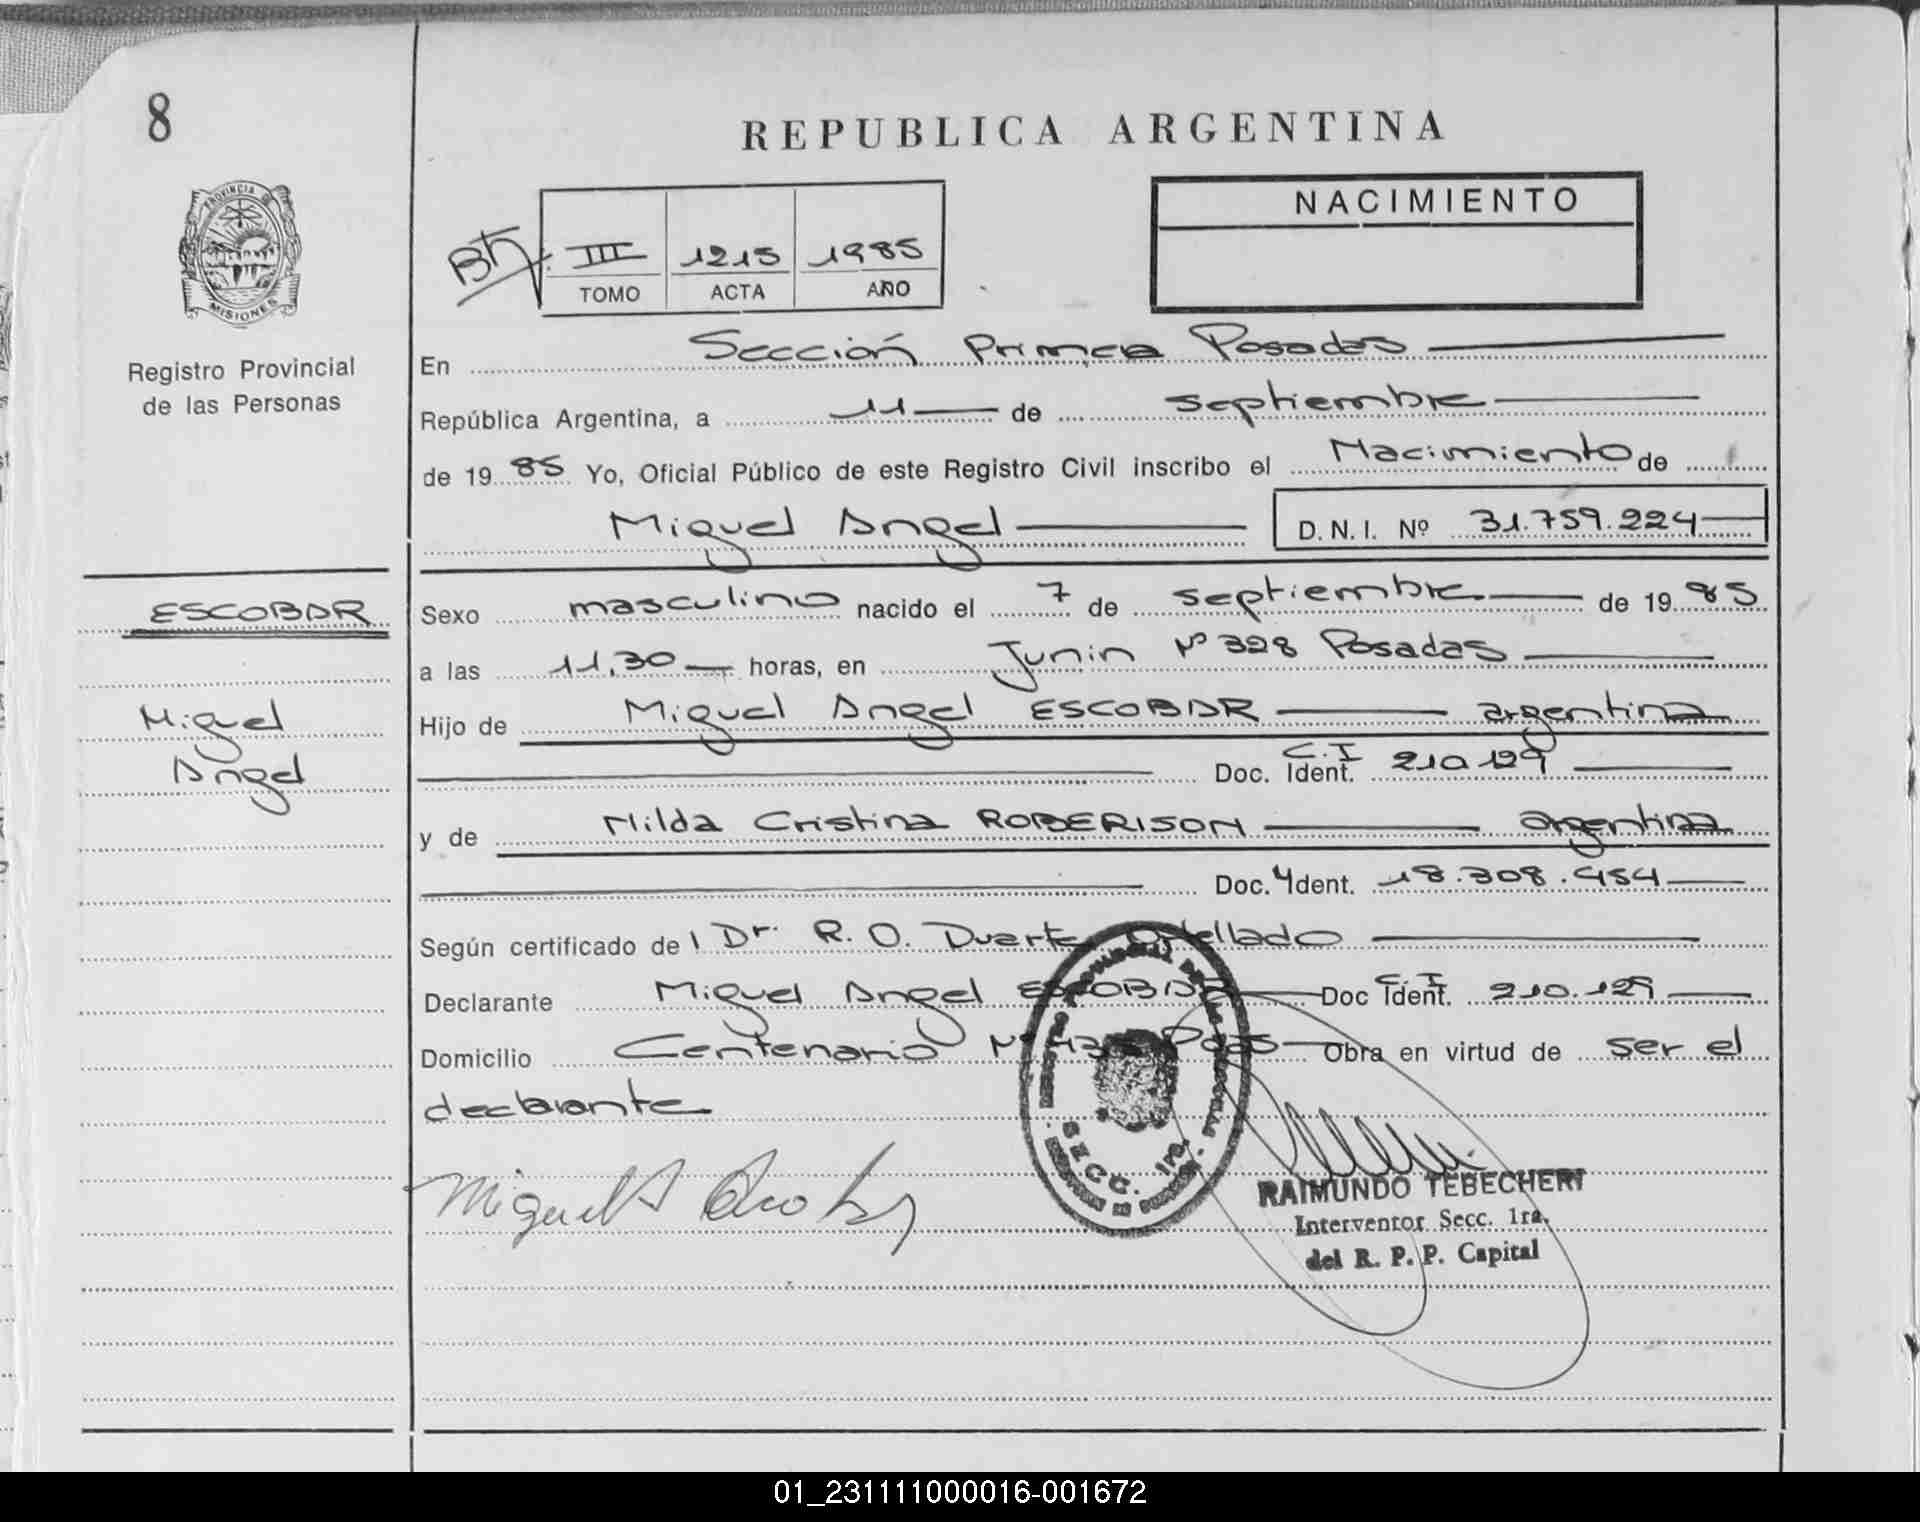 8
REPUBLICA ARGENTINA
PROVINCIA DE
MISIONES
Registro Provincial
de las Personas
NACIMIENTO
III 1215 1985
TOMO ACTA AÑO
En Sección Primera Posadas
República Argentina, a 11 de septiembre
de 1985 Yo, Oficial Público de este Registro Civil inscribo el Nacimiento de
Miguel Angel D.N.I. Nº 31.759.224
ESCOBAR
Miguel
Angel
Sexo masculino nacido el 7 de septiembre de 1985
a las 11,30 horas, en Junin Nº 328 Posadas
Hijo de Miguel Angel ESCOBAR argentina
Doc. Ident. C.I 210.129
y de Nilda Cristina ROBERISON argentina
Doc. Ident. 18.308.454
Según certificado de Dr. R. O. Duarte Ortellado
Declarante Miguel Angel ESCOBAR Doc Ident. C.I 210.129
Domicilio Centenario Nº Pdas Obra en virtud de ser el
declarante
Miguel A Escobar
SECC. 1ra.
RAIMUNDO TEBECHERI
Interventor Secc. 1ra.
del R. P. P. Capital
01_231111000016-001672